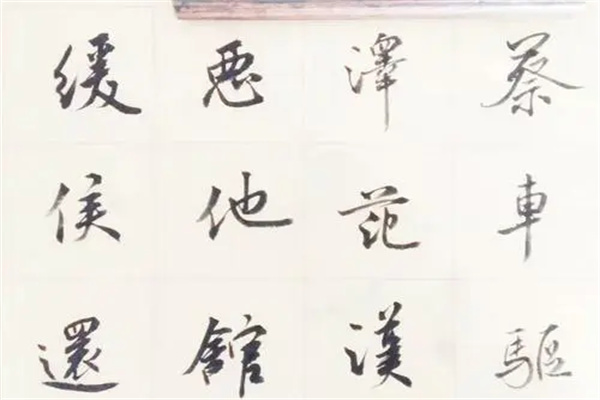 蔡車驅
澤范漢
惡他館
緩侯還